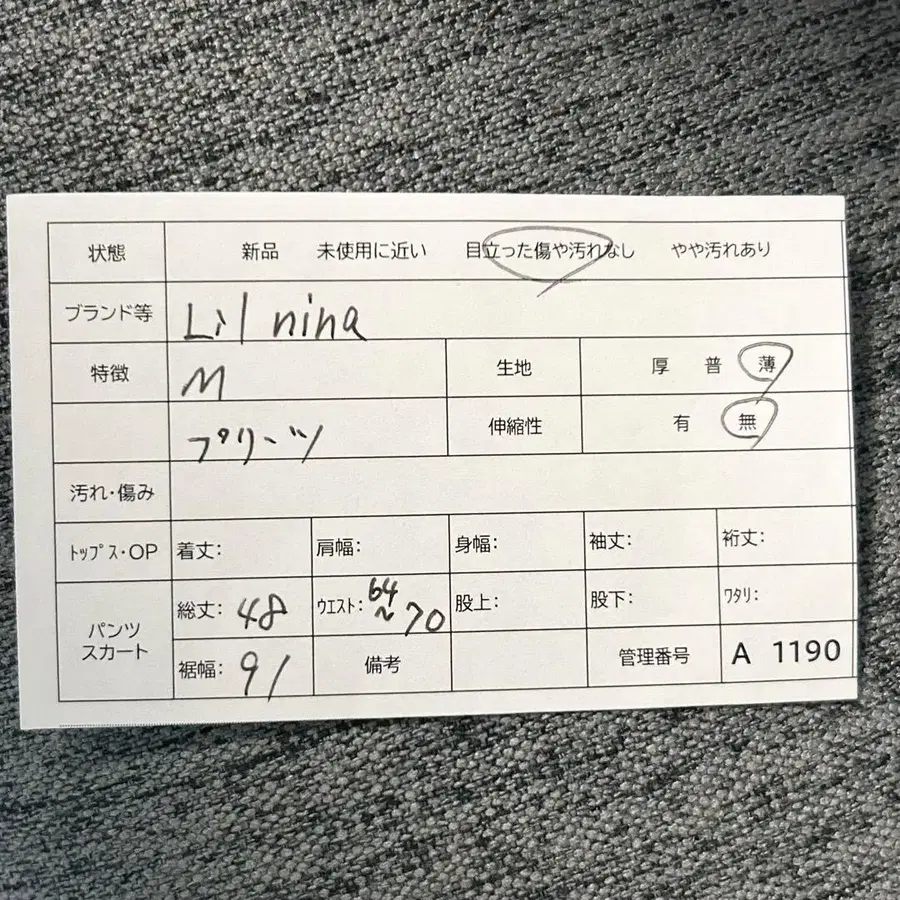 状態 新品 未使用に近い 目立った傷や汚れなし やや汚れあり
ブランド等 Lil nina
特徴 M 生地 厚 普 薄
プリーツ 伸縮性 有 無
汚れ・傷み
トップス・OP 着丈: 肩幅: 身幅: 袖丈: 裄丈:
パンツ スカート 総丈: 48 ウエスト: 64~70 股上: 股下: ワタリ:
裾幅: 91 備考 管理番号 A 1190